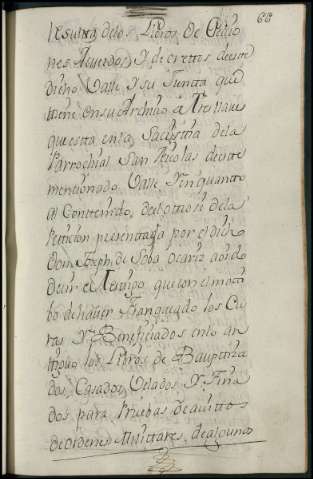 68
resulta delos Libros de Sesio
nes Acuerdos, Y decrettos deeste
dicho Valle Y su Juntta que
ttiene en su Archivo a tres llaves
que esta en la Sacristia dela
Parrochial San Nicolas de este
mencionado Valle, Y en quanto
al Conttenido, del otrosi dela
Peticion presenttada por el dicho
Don Joseph de Soba
decir el Testigo que con el moti
bo de haver franqueado los Cu
ras Y Beneficiados en lo an
tiguo los Libros de Bauptiza
dos Casados Velados Y Fina
dos para Pruebas de avittos
de ordenes Militares, de alguno